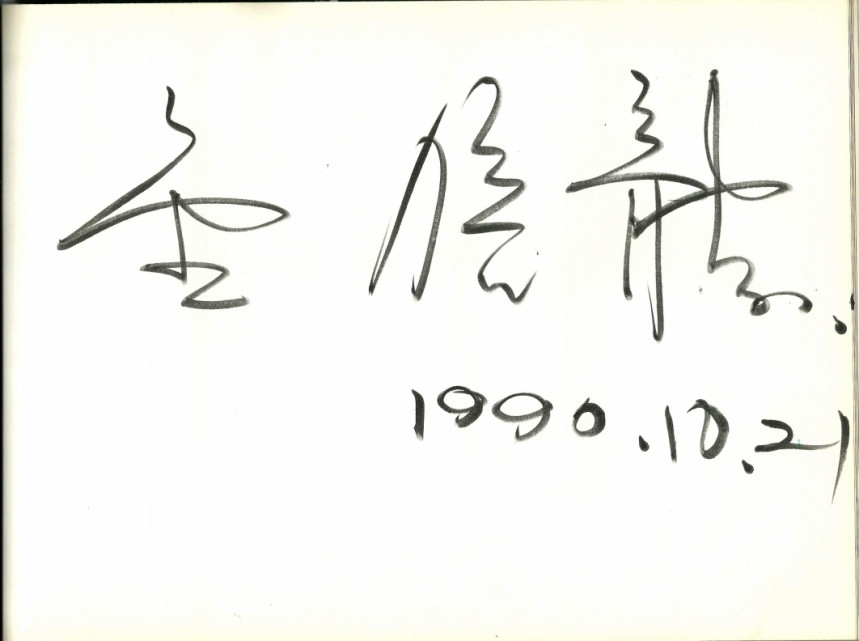 金 龍
1990.10.21